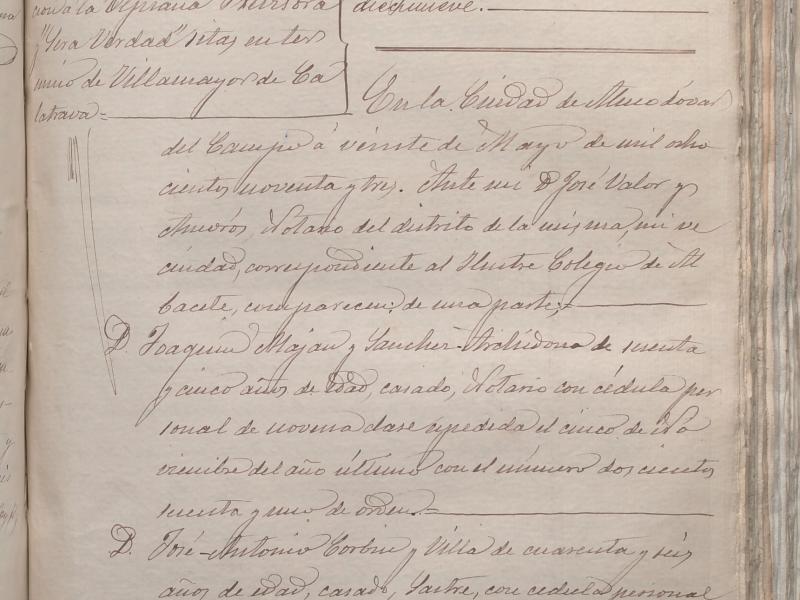 cion a la
"Sera Verdad" sitas en ter
mino de Villamayor de Ca
latrava=
diecinueve.
En la Ciudad de Almodóvar
del Campo á veinte de Mayo de mil ocho
cientos noventa y tres. Ante mi D José Valor y
Amorós, Notario del distrito de la misma, mi ve
cindad, correspondiente al Ilustre Colegio de Al
bacete, comparecen: de una parte;=
D. Joaquin Majan y Sanchez-Archidona de sesenta
y cinco años de edad, casado, Notario con cédula per
sonal de novena clase espedida el cinco de No
viembre del año último con el número doscientos
sesenta y uno de orden.=
D. José-Antonio y Villa de cuarenta y seis
años de edad, casado, Sastre, con cedula personal